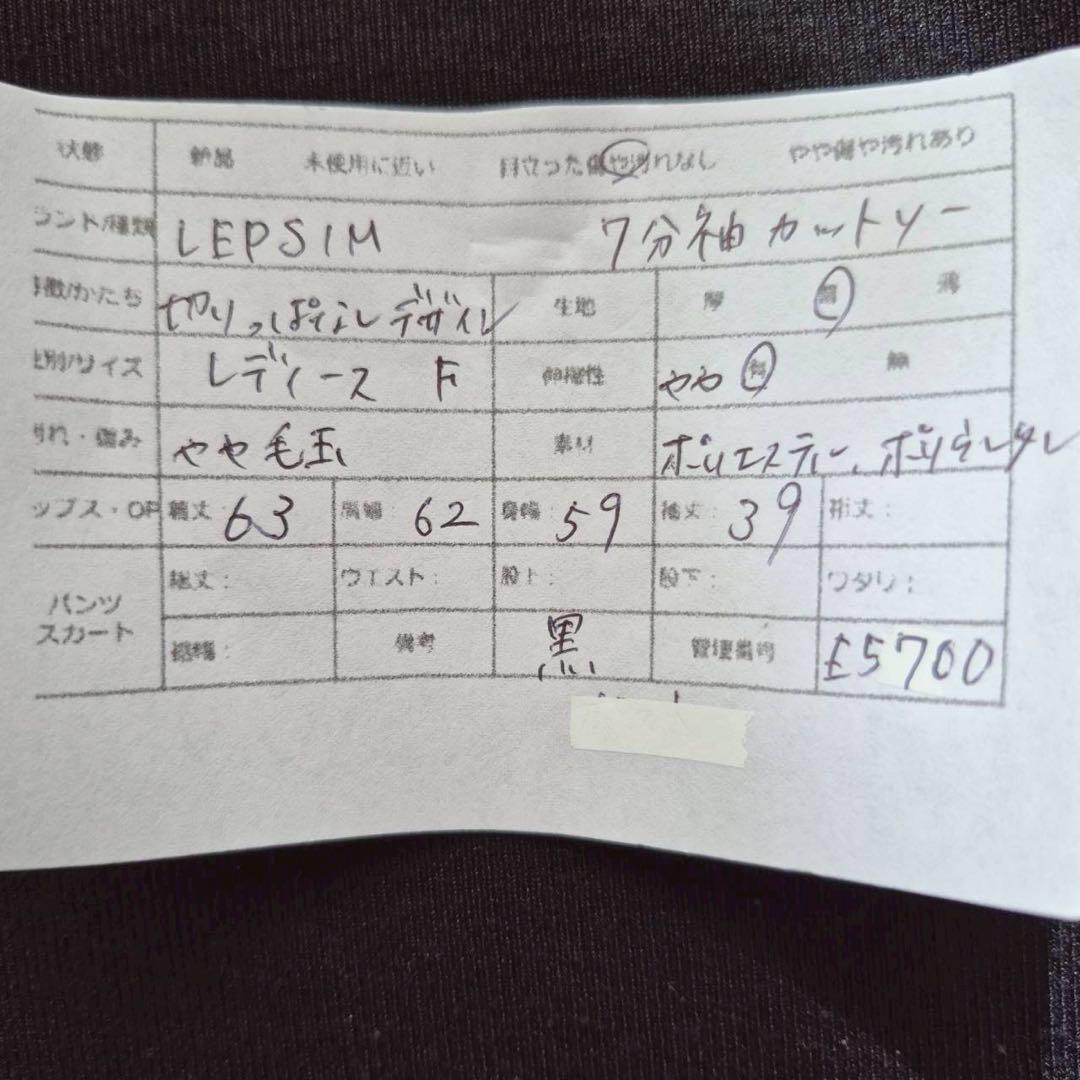 状態 新品 未使用に近い 目立った傷や汚れなし やや傷や汚れあり
ランド/種類 LEPSIM 7分袖カットソー
徴/かたち 切りっぱなしデザイン 生地 厚 普 薄
別/サイズ レディース F 伸縮性 やや 有 無
汚れ・傷み やや毛玉 素材 ポリエステル、ポリウレタン
ップス・OP 総丈: 63 肩幅: 62 身幅: 59 袖丈: 39 裄丈:
パンツ スカート 総丈: ウエスト: 股上: 股下: ワタリ:
裾幅: 備考 黒 管理番号 E5700